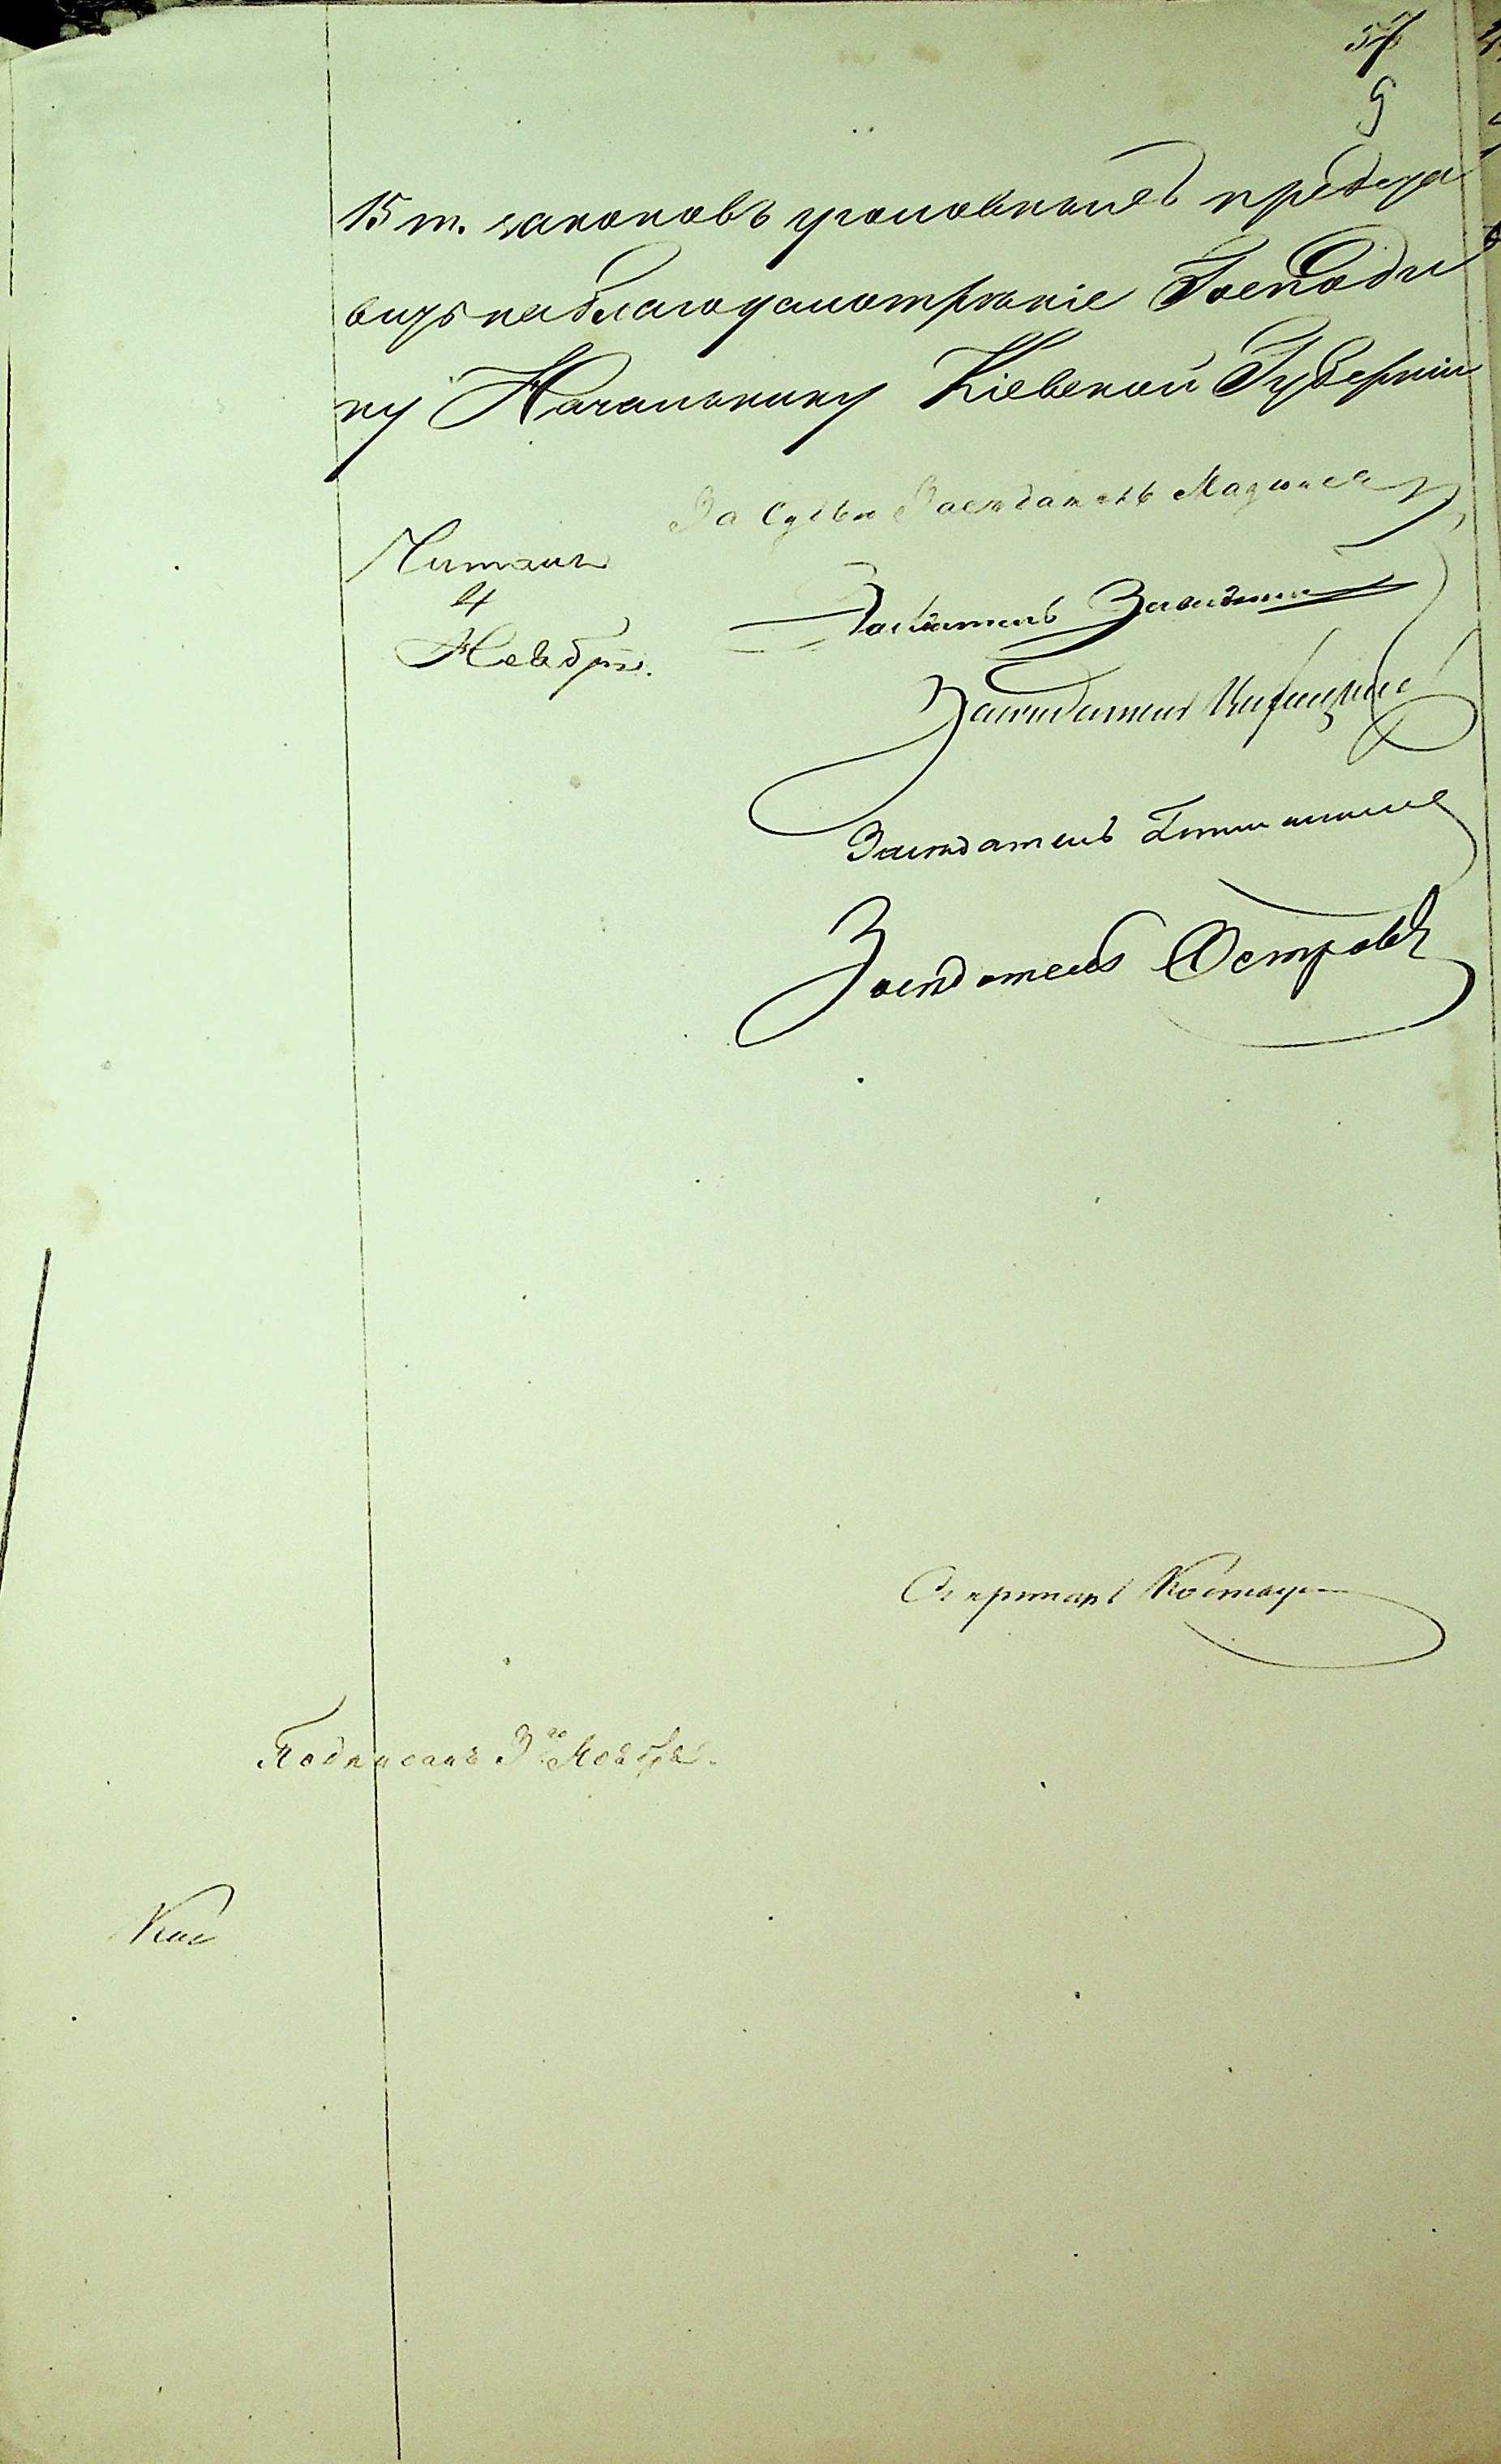 57
9
15 т. законовъ уголовныхъ предста
вить на благоусмотрѣніе Господи
ну Начальнику Кіевской Губерніи
За Судью Засѣдатель
Читалъ
4
Ноября.
Засѣдатель
Засѣдатель
Засѣдатель
Засѣдатель Островскій
Секретарь
Подписанъ 3го Ноября.